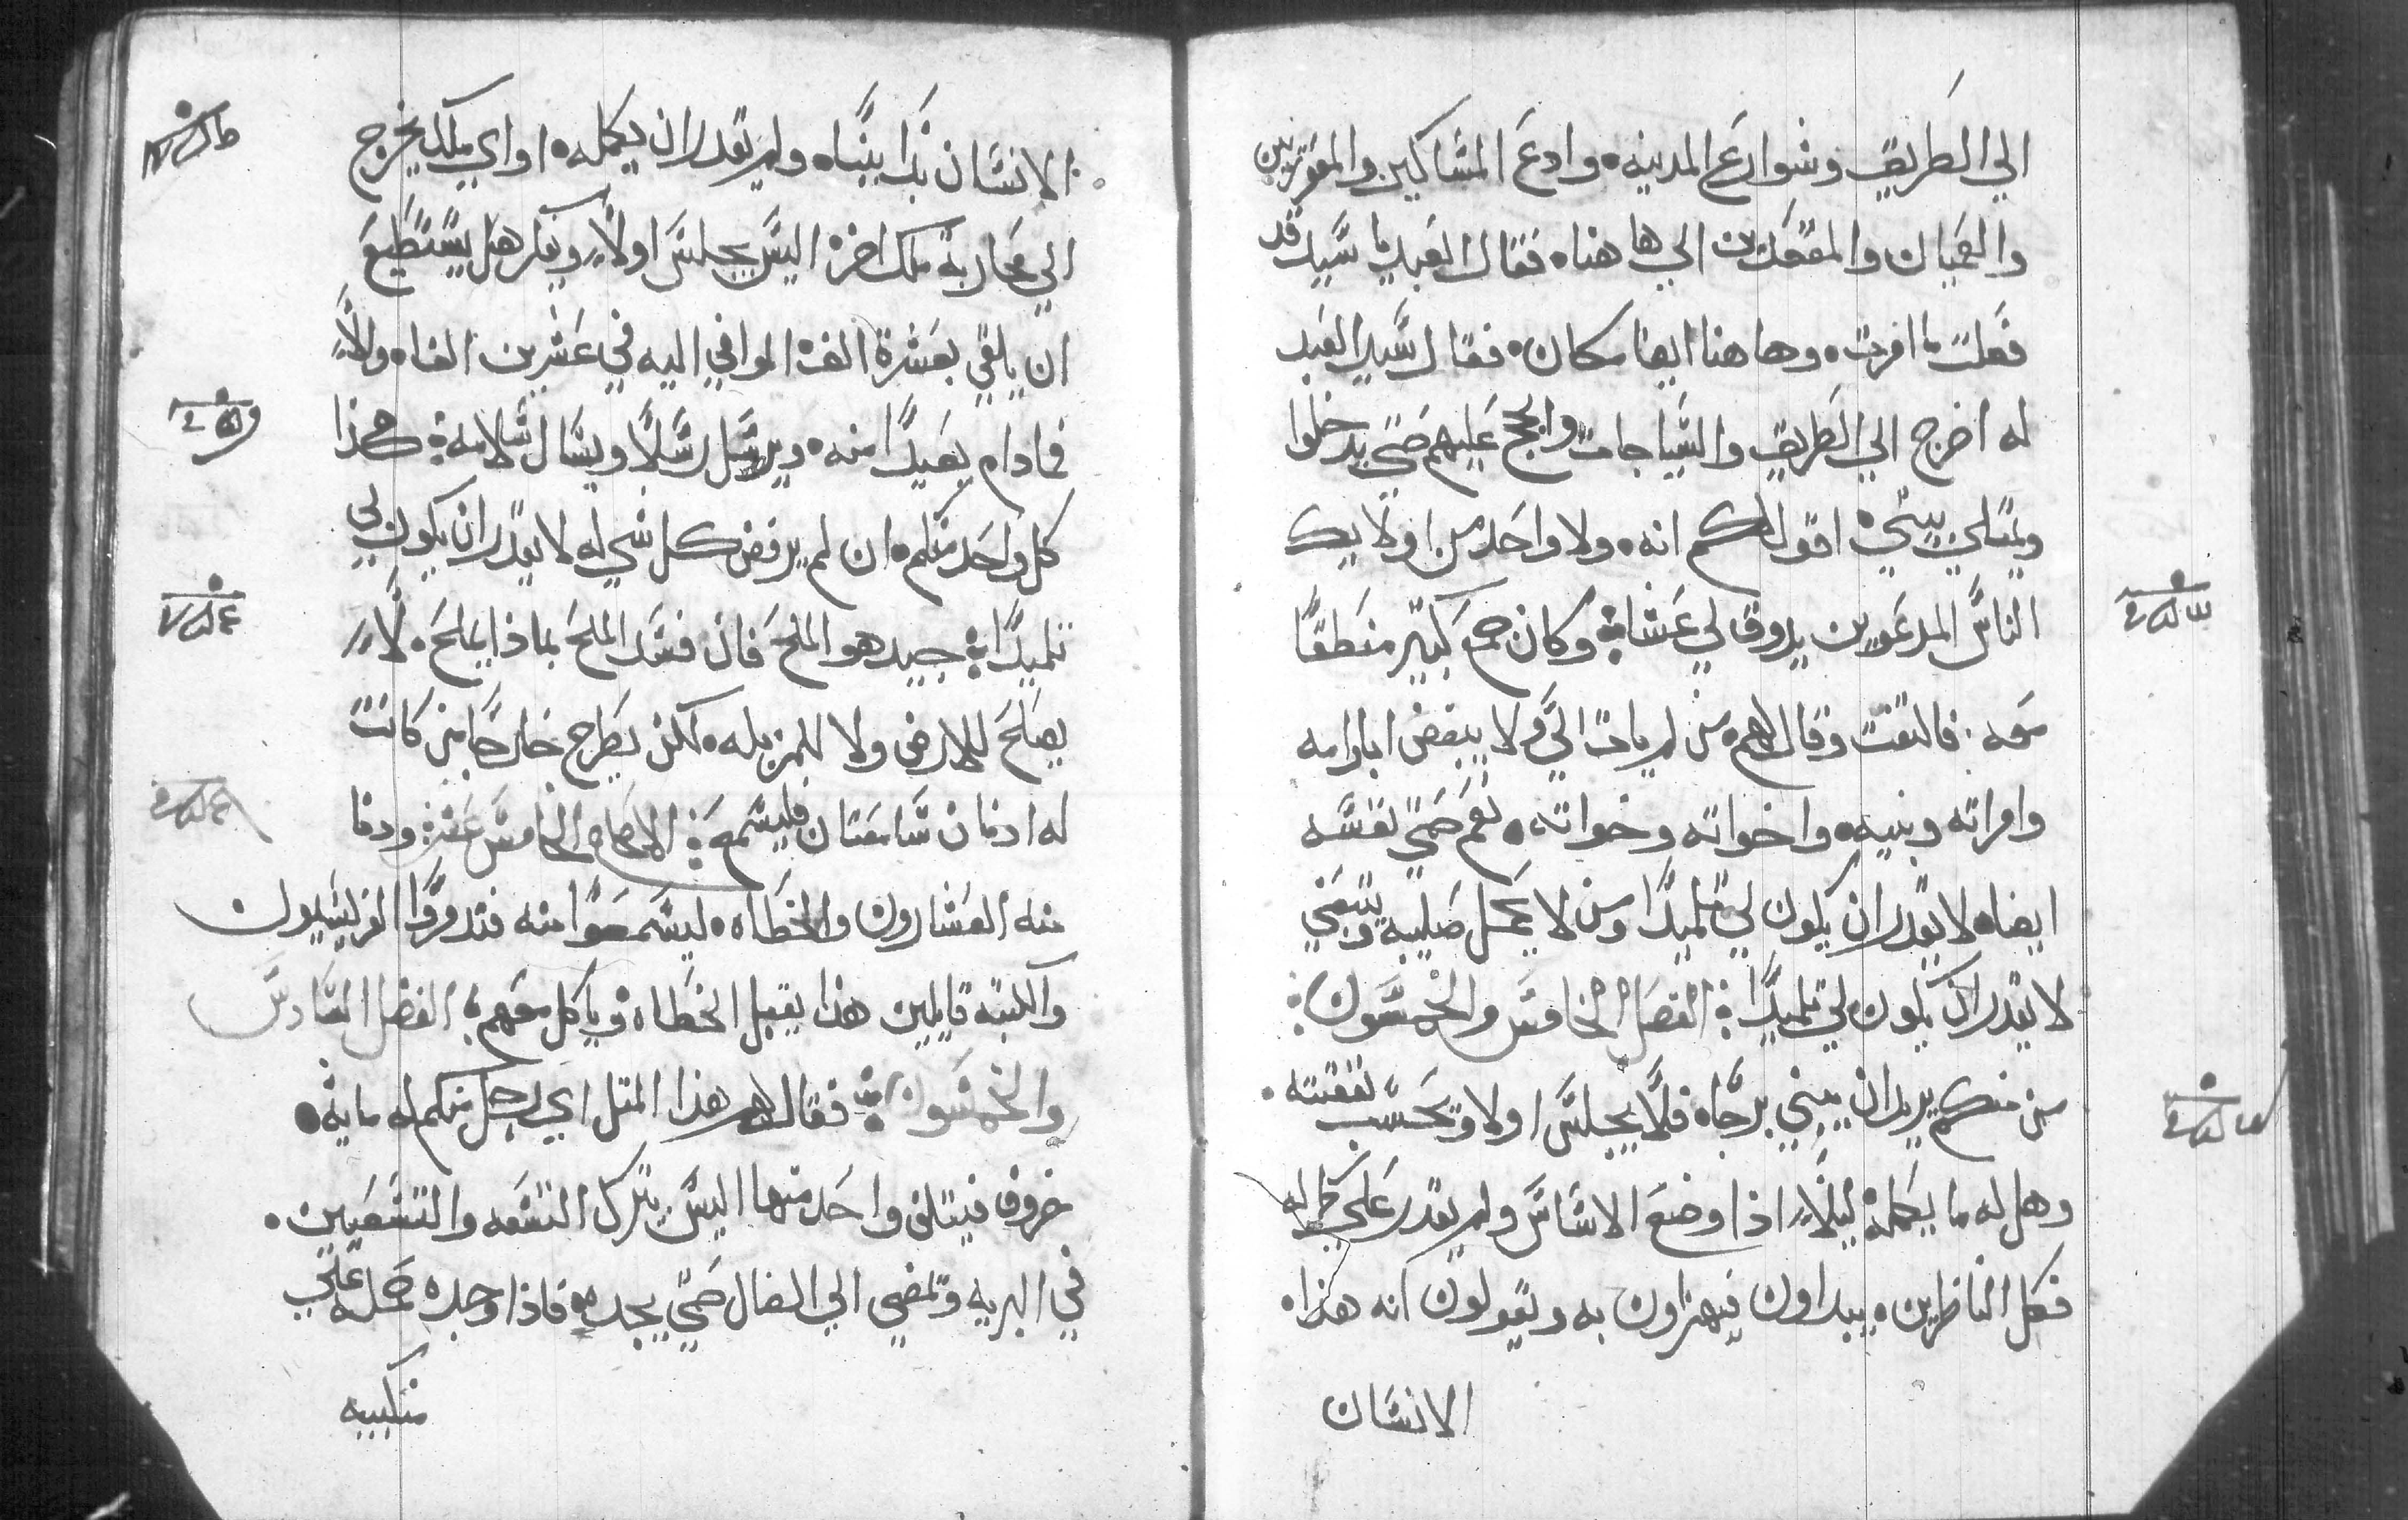 الي الطريق وشوارع المدينه٠ وادع المساكين والمعوزين
والعميان والمقعدين الي ها هنا٠ فقال العبد يا سيد قد
فعلت ما امرت٠ وها هنا ايضا مكان٠ فقال سيد العبد
له اخرج الي الطريق والسياجات والجج عليهم حتي يدخلوا
ويمتلي بيتي٠ اقول لكم انه٠ ولا واحد من اولايك
الناس المدعوين يدوق لي عشا؞ وكان جمع كبير منطقا
معه٠ فالتفت وقال لهم٠ من لم يات الي ولا يبغض اباه وامه
وامراته وبنيه٠ واخواته وخواته٠ نعم حتي نفسه
ايضا٠ لا يقدر ان يكون لي تلميدا ومن لا يحمل صليبه ويتبعني
لا يقدر ان يكون لي تلميدا؞ الفصل الخامس والخمسون؞
من منكم يريد ان يبني برجا٠ فلا يجلس اولا ويحسب نفقته٠
وهل له ما يكمله٠ ليلا٠ اذا وضع الاساس ولم يقدر علي كماله
فكل الناظرين٠ يبداون فيهزاون به ويقولون انه هذا٠
الانسان
الانسان بدا يبنا٠ ولم يقدر ان يكمله٠ او اي ملك يخرج
الي محاربة ملك اخر٠ اليس يجلس اولا٠ ويفكر هل يستطيع
ان يلقي بعشرة الف٠ الموافي اليه في عشرين الفا٠ ولا
فمادام بعيدا منه٠ ويرسل رسلا ويسال سلامه؞ هكذا
كل واحد منكم٠ ان لم يرفض كل شي له لا يقدر ان يكون لي
تلميدا؞ جيد هو الملح فان فسد الملح بماذا يملح٠ لا
يصلح للارض ولا للمزبله٠ لكن يطرح خارجا من كانت
له ادنان سامعتان فليسمع؞ الاصحاح الخامس عشر؞ ودنا
منه العشارون والخطاه٠ ليسمعوا منه فتدمروا الفريسيون
والكتبه قايلين هذا يقبل الخطاه وياكل معهم؞ الفصل السادس
والخمسون؞ فقال لهم هذا المتل اي رجل منكم له مايه٠
خروف فيتلف واحد منها اليس يترك التسعه والتسعين٠
في البريه ويمضي الي الضال حتي يجده٠ فاذا وجده حمله علي
منكبيه